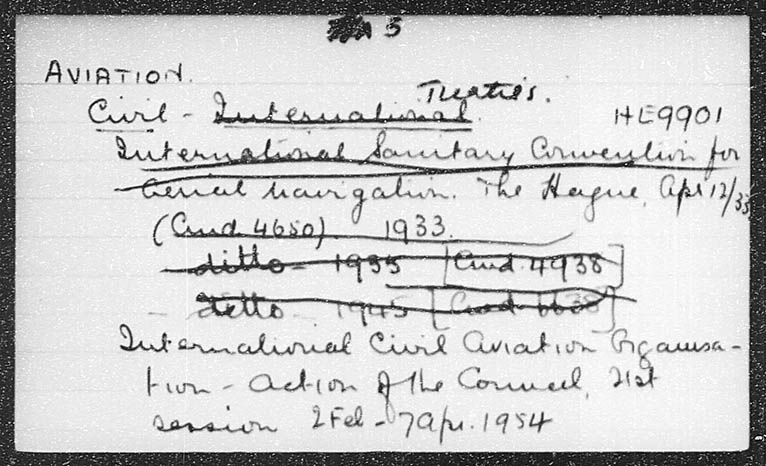 3
AVIATION.
Treaties.
Civil - International. HE9901
International Sanitary Convention for
Aerial Navigation. The Hague, Apr 12/33
(Cmd 4650) 1933.
ditto - 1935 [Cmd. 4938]
- ditto - 1945 [Cmd. 6638]
International Civil Aviation Organisa-
tion - Action of the Council, 21st
session 2 Feb - 7 Apr. 1954